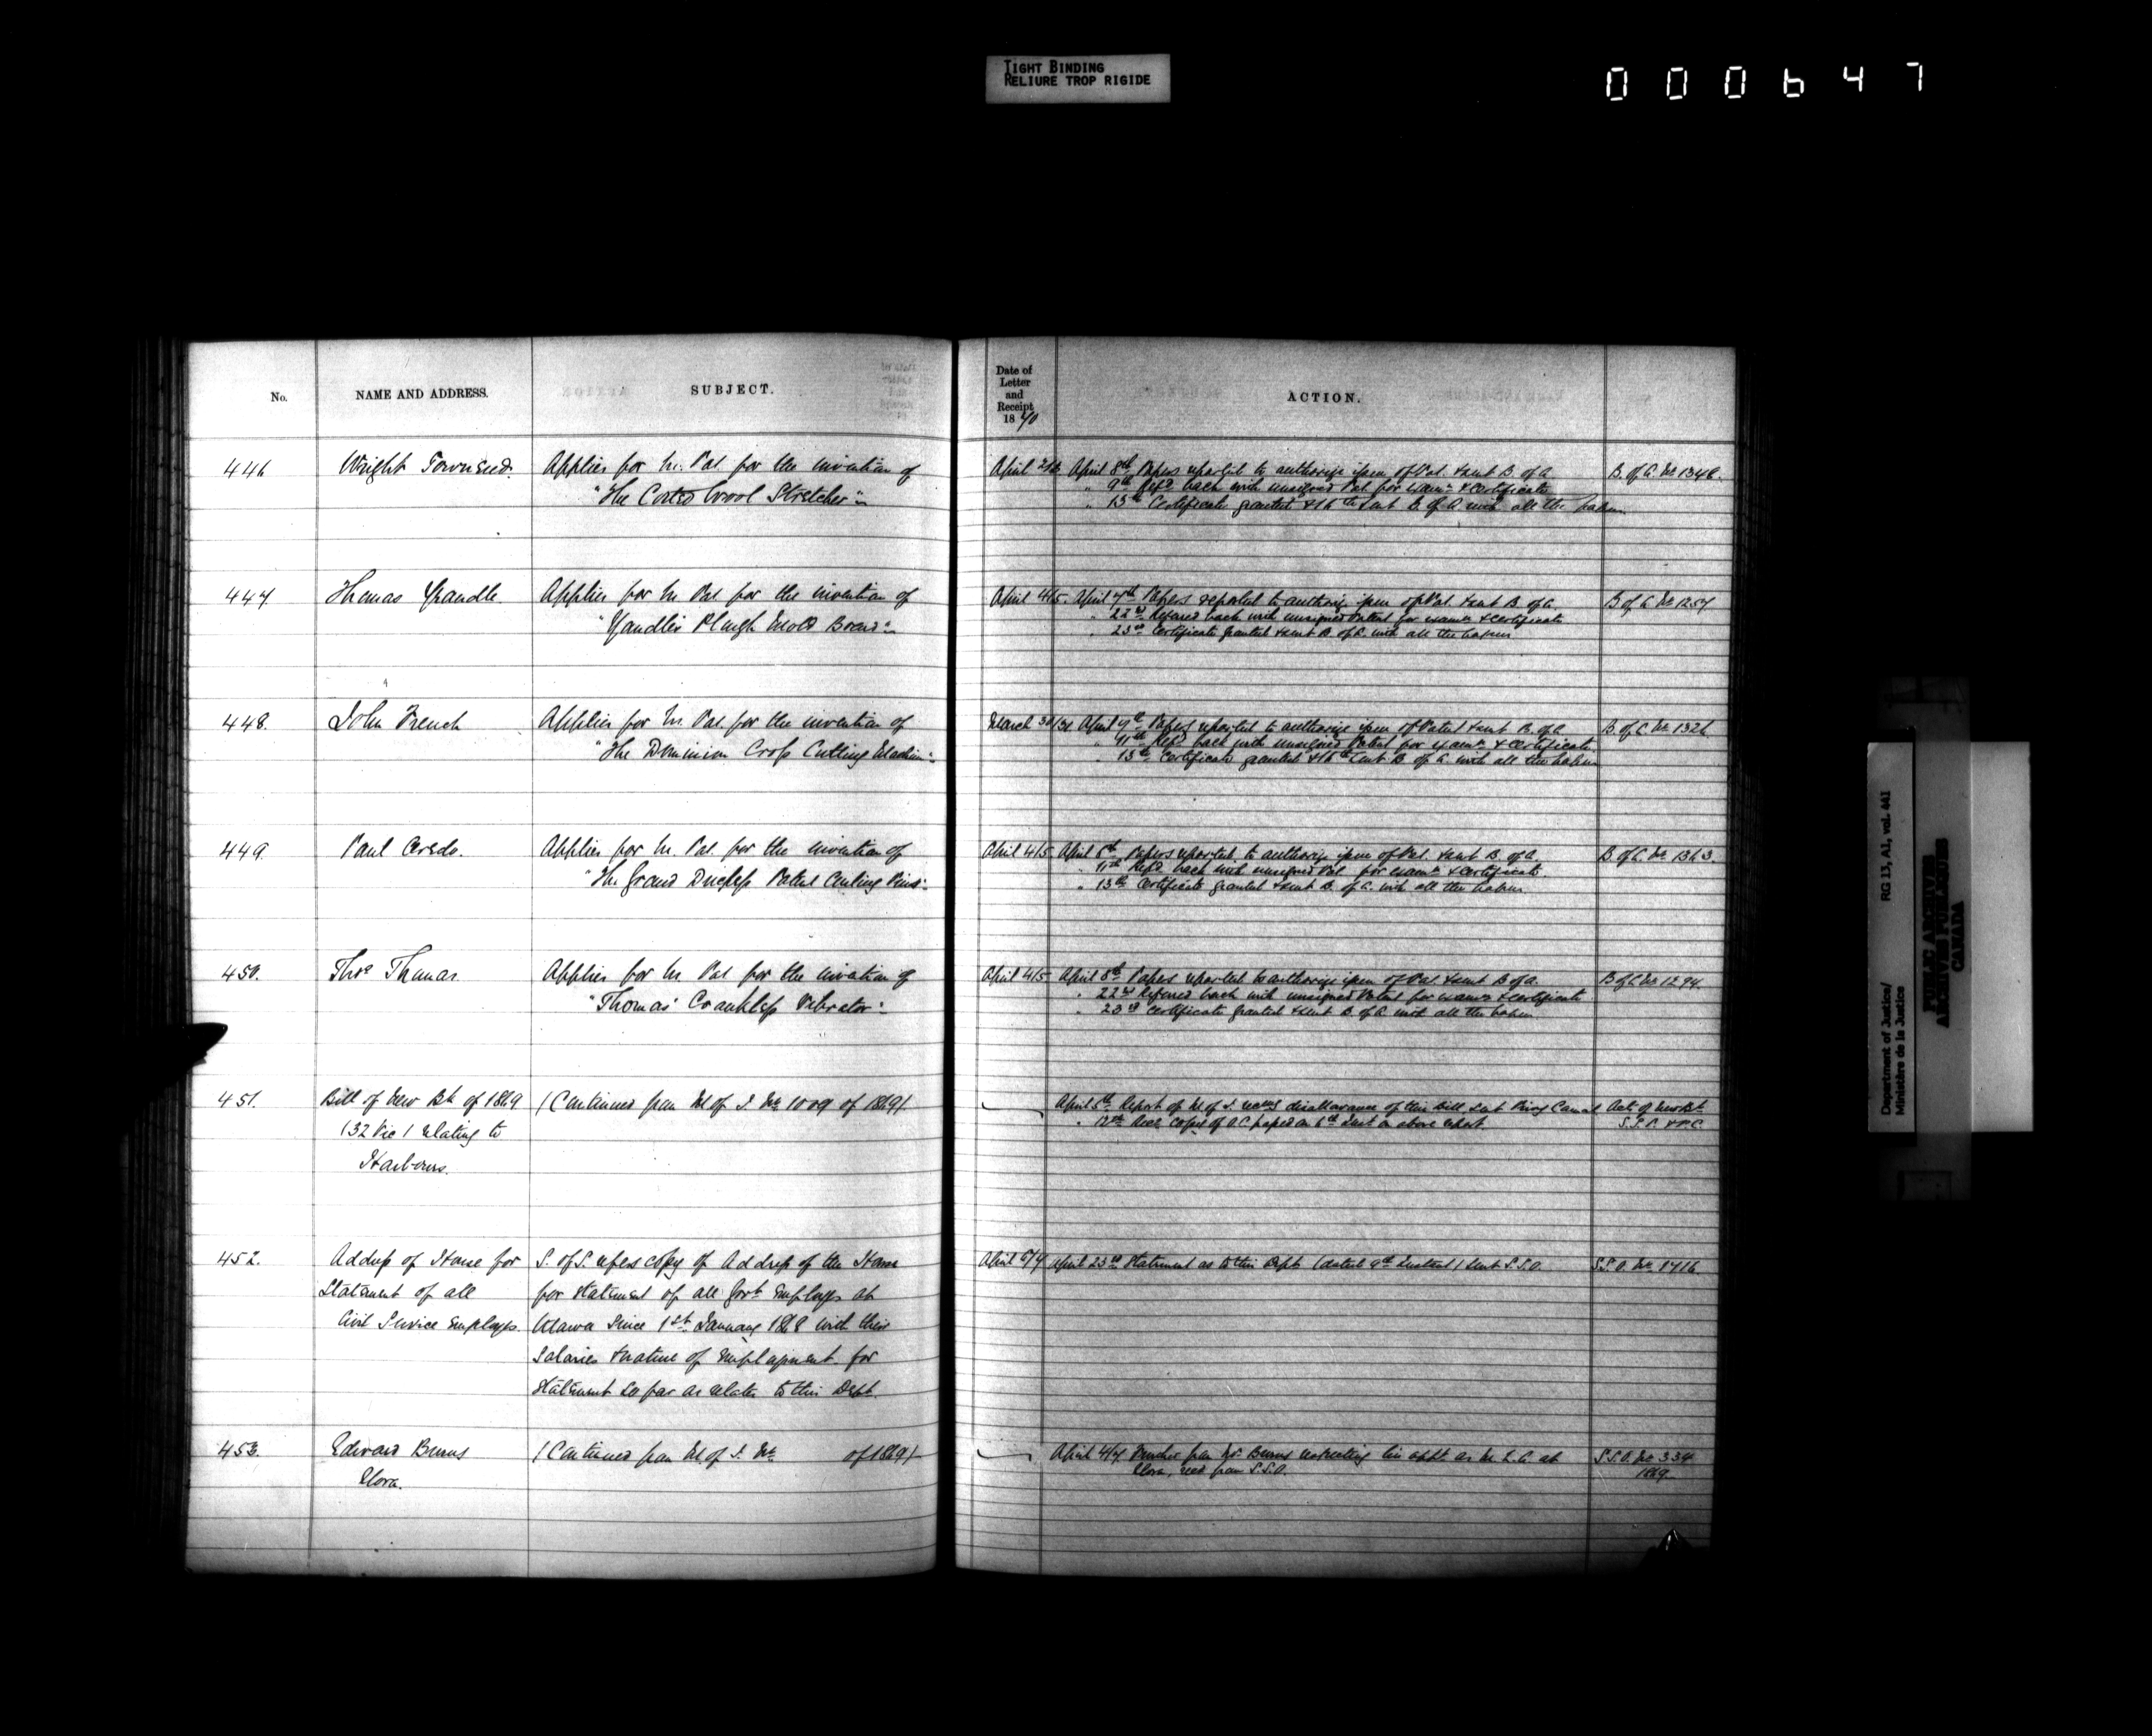 TIGHT BINDING
RELIURE TROP RIGIDE
000647
No.
NAME AND ADDRESS.
SUBJECT.
Date of
Letter
and
Receipt
1870
ACTION.
446
Wright Townsend.
Applies for In. Pat. for the invention of
"The Wool Stretcher"
April
April 8th Papers reported to authorize issue of Pat. & sent B. of A.
" 9th Refd back with unsigned Pat. for examn & certificate
" 13th Certificate granted & 16th sent B. of A. with all the papers
B. of A. No 1348.
447.
Thomas Yeandle
Applies for In. Pat. for the invention of
"Yeandle's Plough Mold Board"
April 4/5.
April 7th Papers reported to authorize issue of Pat. & sent B. of A.
" 22nd Referred back with unsigned Patent for examn & certificate
" 23rd Certificate granted & sent B. of A. with all the papers
B of A No 1257
448.
John French
Applies for In. Pat. for the invention of
"The Dominion Cross Cutting Machine"
March 30/31
April 9th Papers reported to authorize issue of Patent & sent B. of A.
" 11th Refd back with unsigned Patent for examn & certificate
" 13th Certificate granted & 16th sent B. of A. with all the papers
B. of A. No 1326
449.
Paul
Applies for In. Pat. for the invention of
"The Grand Duchess Patent Curling Pins"
April 4/5
April 8th Papers reported to authorize issue of Pat. & sent B. of A.
" 11th Refd back with unsigned Pat. for examn & certificate
" 13th Certificate granted & sent B. of A. with all the papers
B. of A. No 1363.
450.
Thos Thomas.
Applies for In. Pat. for the invention of
"Thomas' Crankless Vibrator"
April 4/5
April 8th Papers reported to authorize issue of Pat. & sent B of A.
" 22nd Referred back with unsigned Patent for examn & certificate
" 23rd Certificate granted & sent B. of A. with all the papers
B of A No 1294.
451.
Bill of New Bk of 1869
(32 Vic) relating to
Harbours.
(Continued from M. of J. No 1009 of 1869)
April 5th Report of M. of J. recmg disallowance of this bill sent Privy Council
" Recd copy of O.C. passed on 6th Inst on above report.
Act of New Bk
S.S.P. & P.C.
452.
Address of House for
Statement of all
Civil Service Employes.
S. of S. refers copy of Address of the House
for statement of all Govt Employes at
Ottawa since 1st January 1868 with their
Salaries & nature of employment for
Statement so far as relates to this Dept.
April 6/7
April 23rd Statement as to this Dept (dated 9th Instant) sent S.S.O.
S.S.O. No 1716.
453.
Edward Burns
Elora.
(Continued from M. of J. No of 1869)
April 4/7 from Mr Burns respecting his appt. as M.L.C. at
Elora, recd from S.S.O.
S.S.O. No 334
1869.
Department of Justice/
Ministère de la Justice
RG 13, A1, vol. 441
PUBLIC ARCHIVES
ARCHIVES PUBLIQUES
CANADA